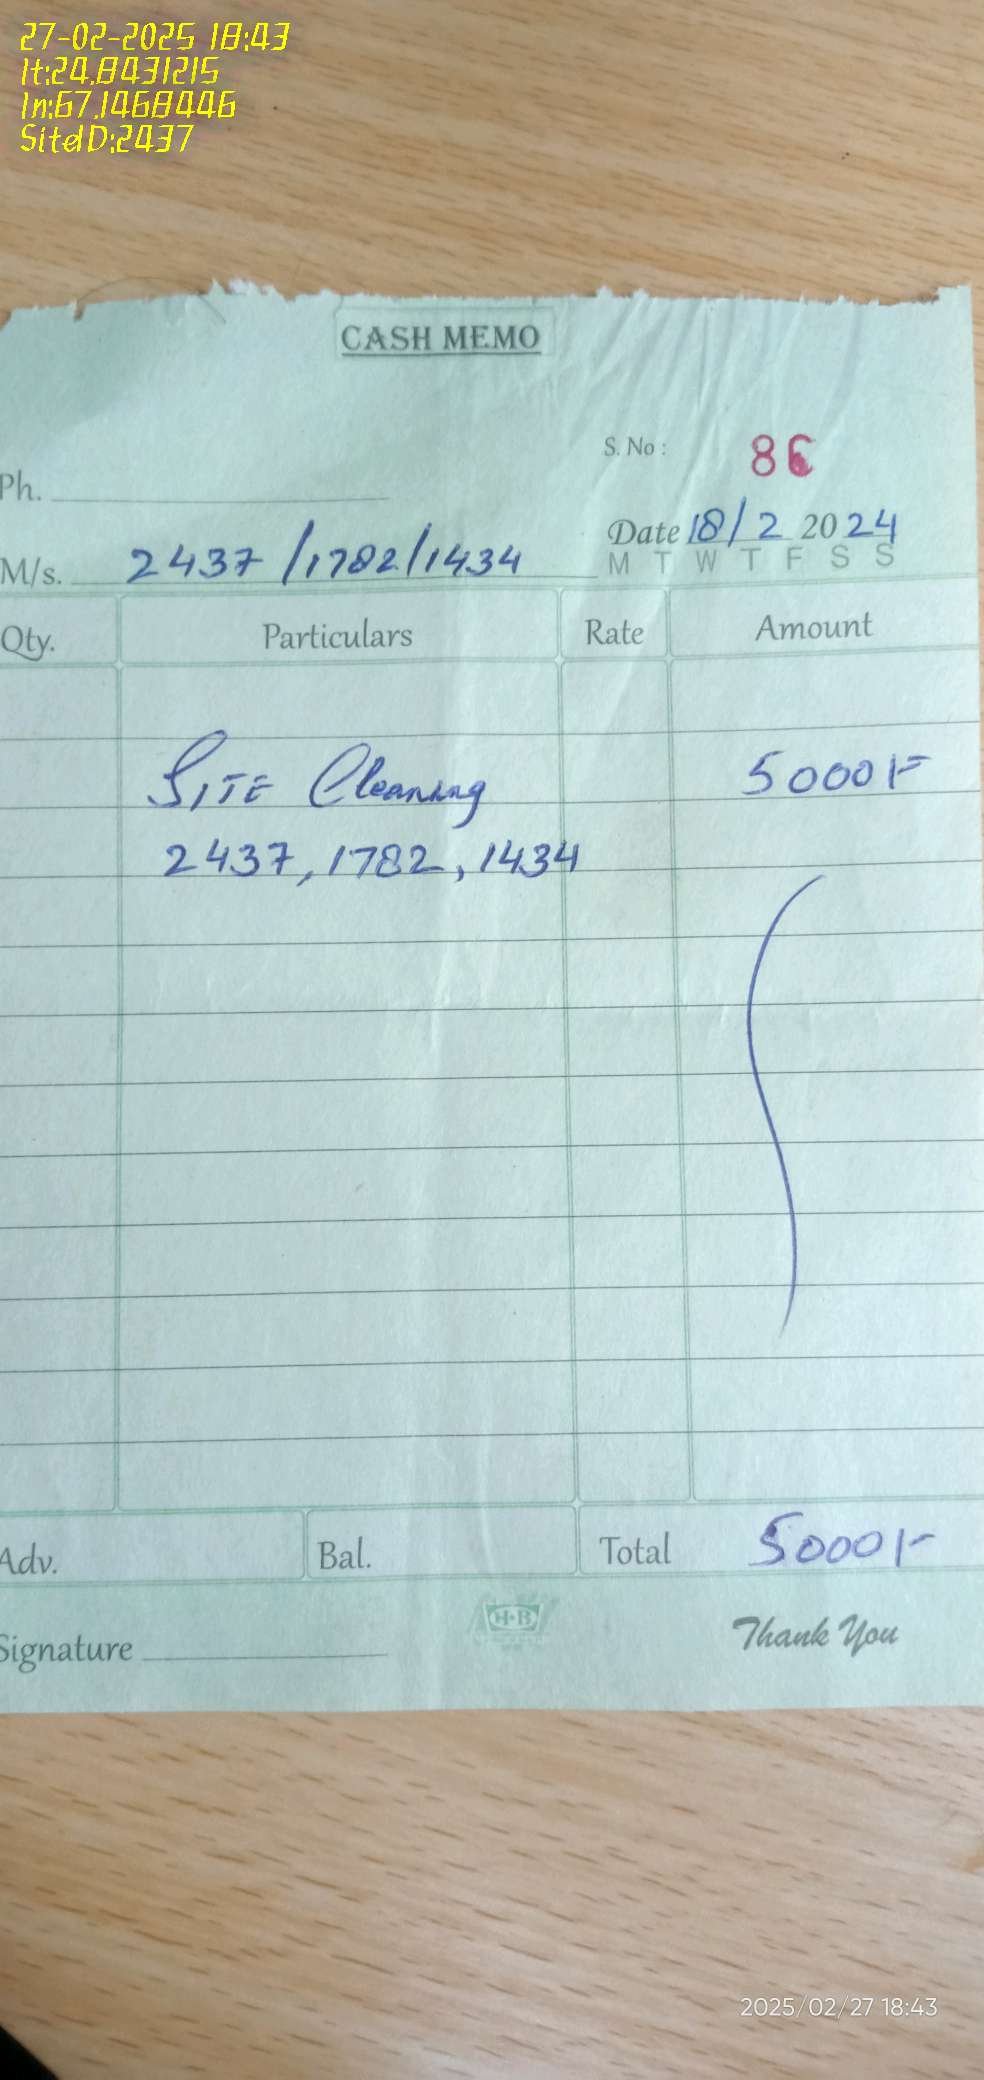 27-02-2025 18:43
lt:24.8431215
ln:67.1468446
SiteID:2437
CASH MEMO
S. No : 86
Ph.
Date 18/2 2024
M/s. 2437/1782/1434
M T W T F S S
Qty. Particulars Rate Amount
SITE Cleaning 5000/=
2437, 1782, 1434
Adv. Bal. Total 5000/-
H·B
Signature Thank You
2025/02/27 18:43